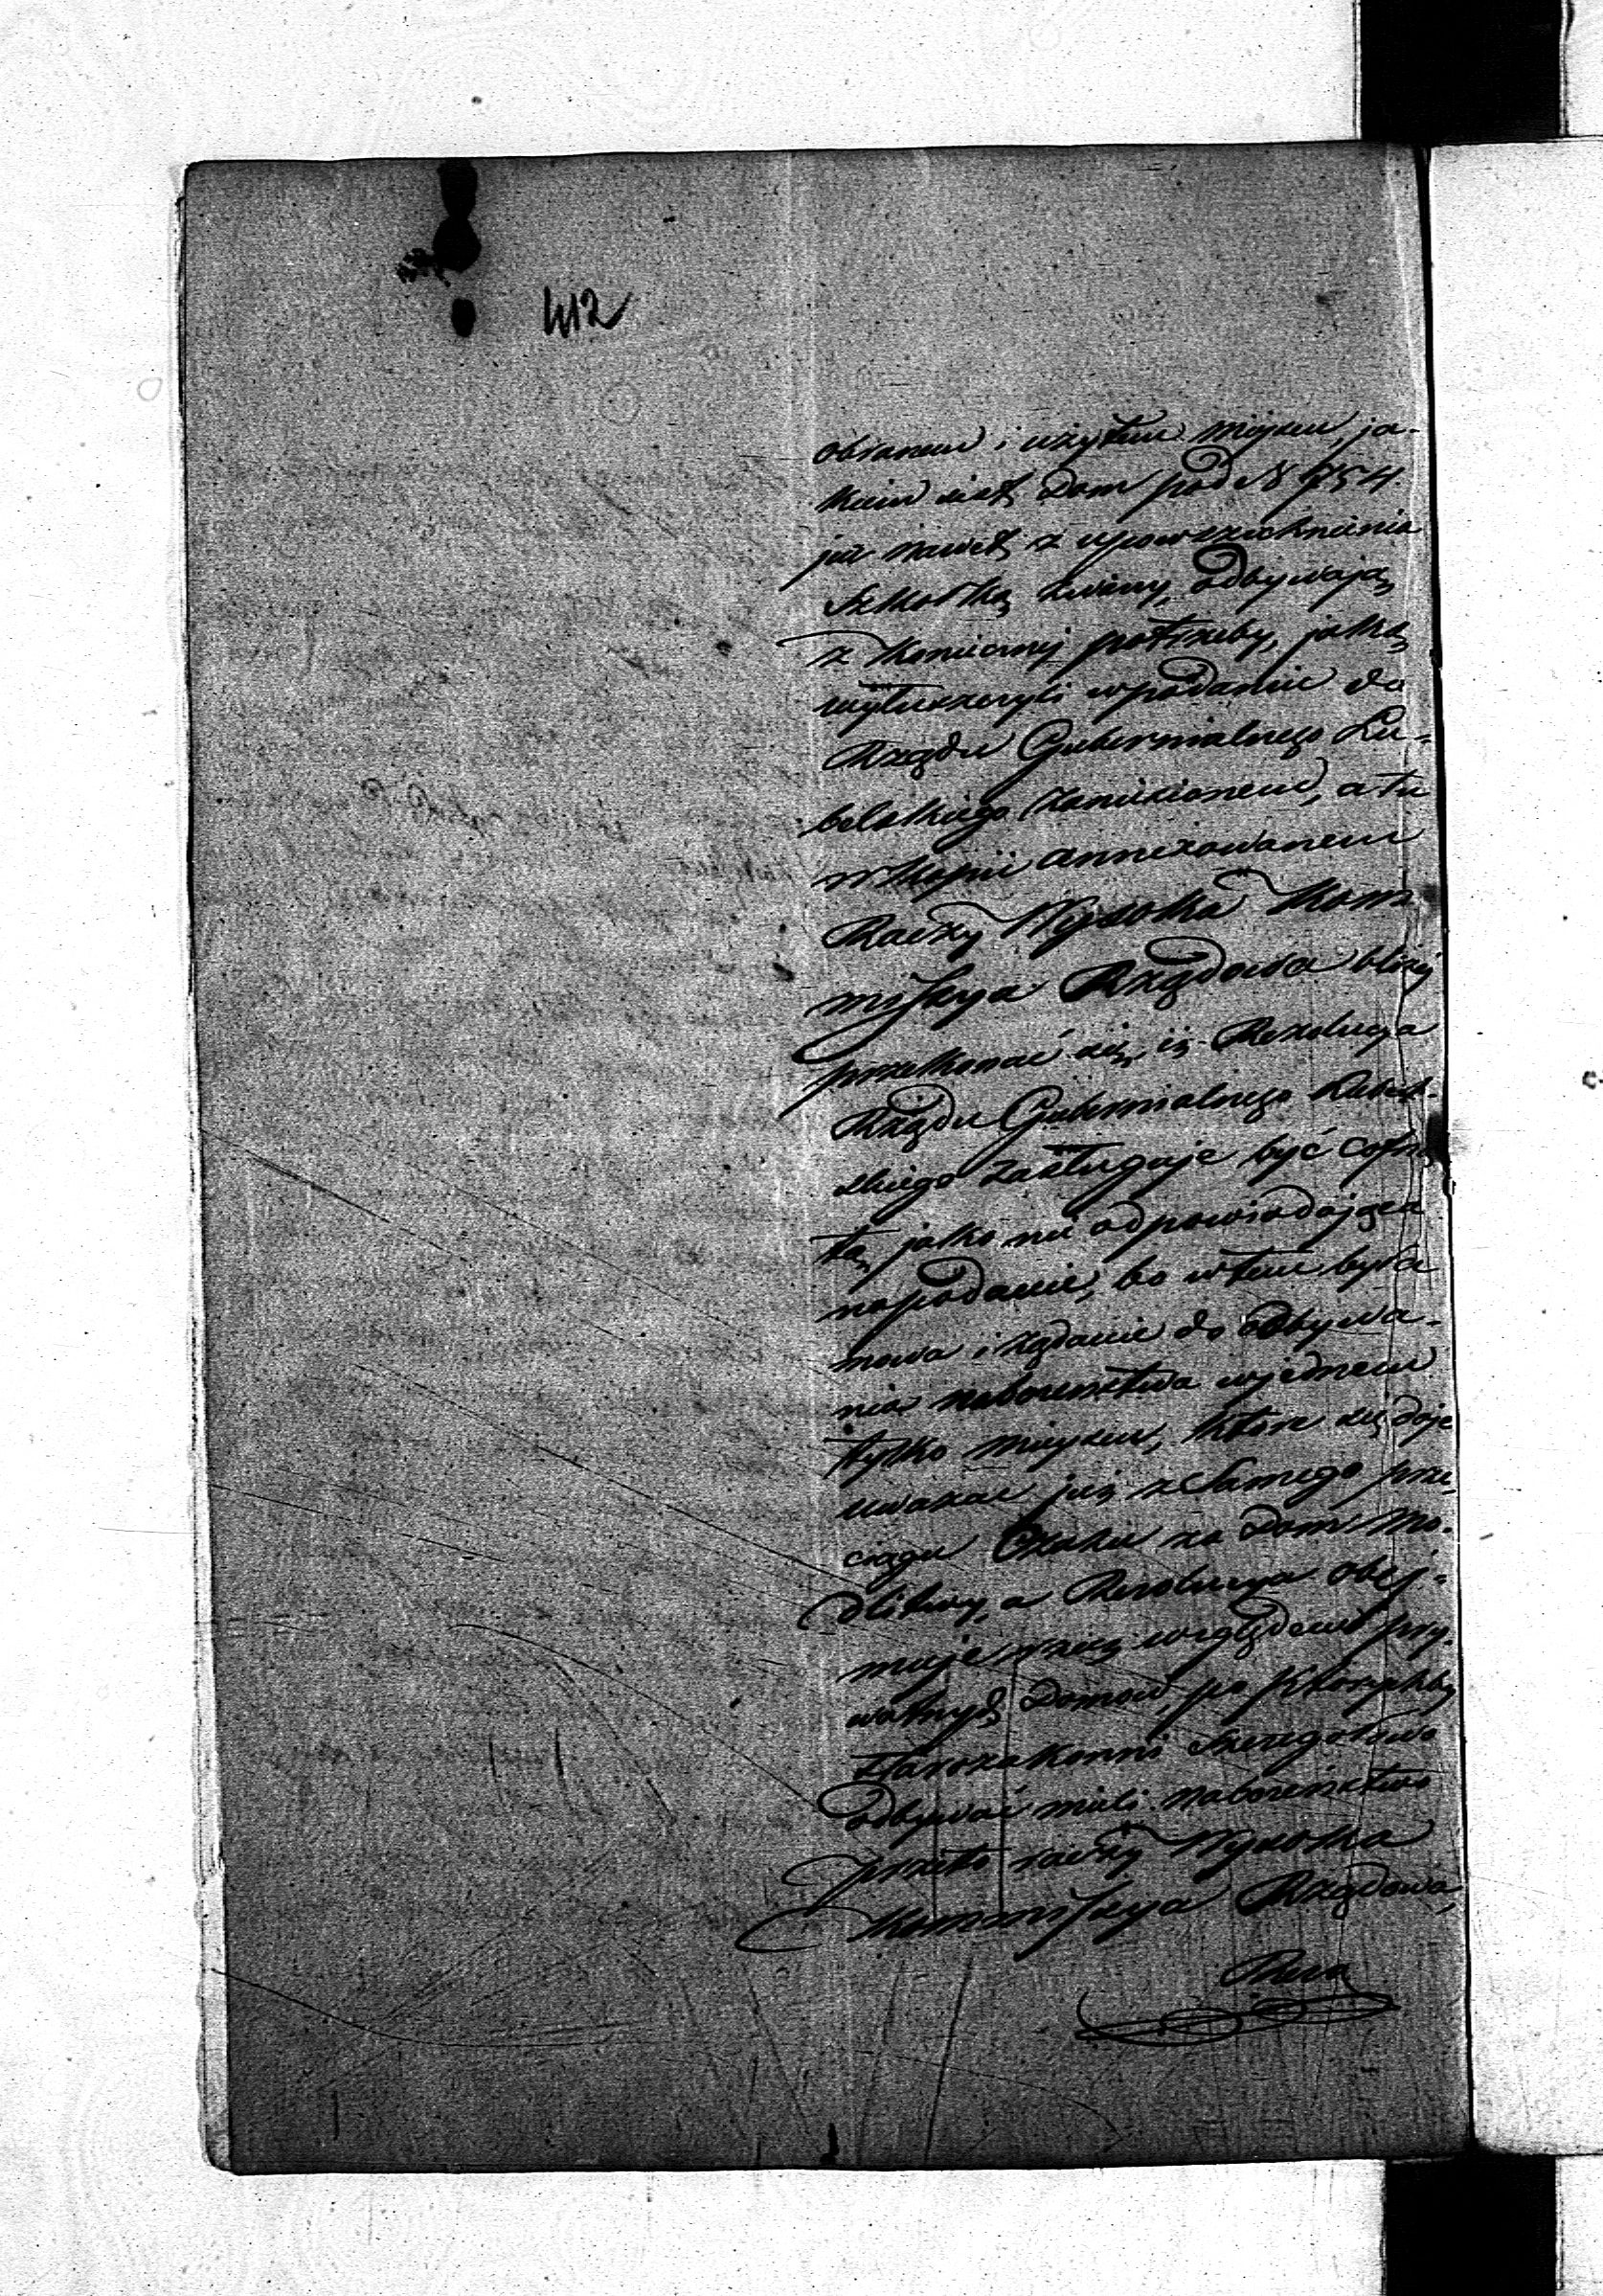 412
obranem i użytem miejscu, ja-
kiem jest Dom pod N 754
już nawet z upowszechnienia
Szkołką zwany, odbywają
z koniecznej potrzeby, jak
wytłuszczyli w podaniu do
Rządu Gubernialnego Lu-
belskiego zaniesionem, a tu
w kopii annexowanem
Raczy Wysoka Kom-
missya Rządowa bliżej
przekonać się, iż Rezolucya
Rządu Gubernialnego Lubel-
skiego zasługuje być cofnię-
tą, jako nie odpowiadająca
na podanie, bo w tem była
mowa i żądanie do odbywa-
nia nabożeństwa w jednem
tylko miejscu, które się daje
uważać już z samego prze-
ciągu Czasu za Dom Mo-
dlitwy, a Rezolucya obej-
muje rzecz względem pry-
watnych Domów, po których by
starozakonni szczegółowo
odbywać mieli nabożeństwo
przeto raczy Wysoka
Kommissya Rządowa,